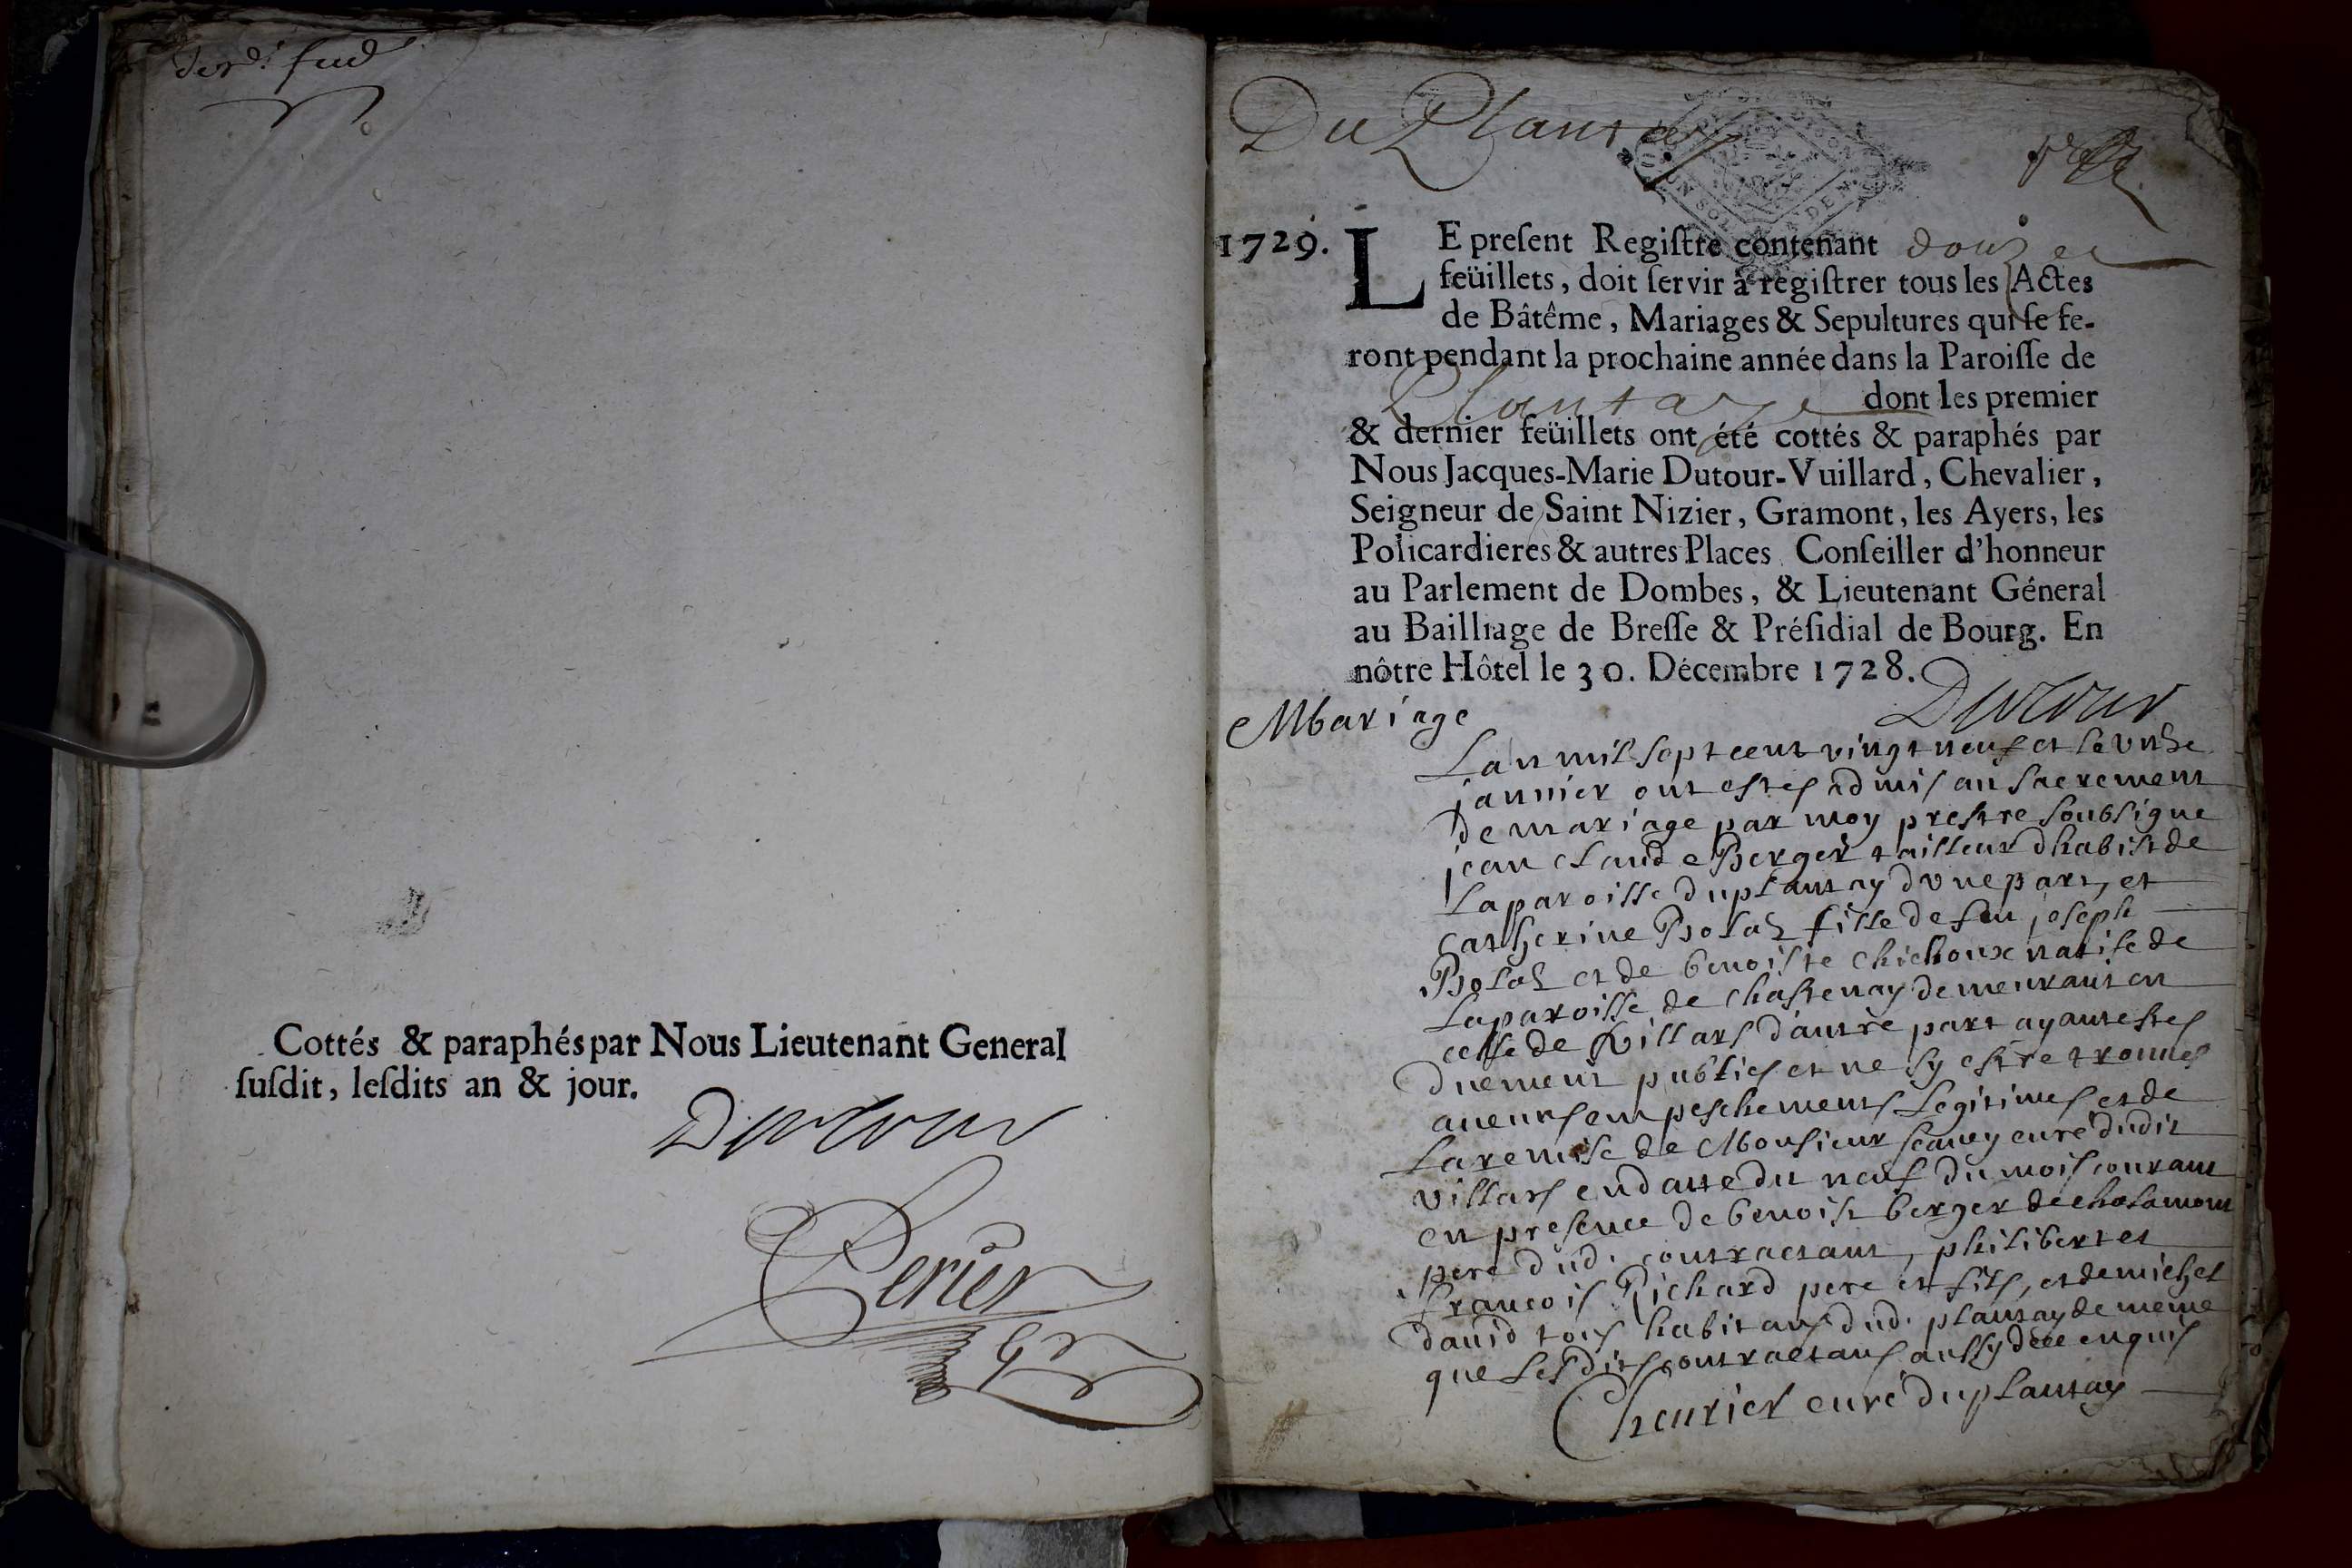 Cottés & paraphés par Nous Lieutenant General
ſuſdit, leſdits an & jour.
Dutour
Perier
Du Plantay
1729. LE preſent Regiſtre contenant douze
feüillets, doit ſervir à regiſtrer tous les Actes
de Bâtême, Mariages & Sepultures qui ſe fe-
ront pendant la prochaine année dans la Paroiſſe de
Plantay dont les premier
& dernier feüillets ont été cottés & paraphés par
Nous Jacques-Marie Dutour-Vuillard, Chevalier,
Seigneur de Saint Nizier, Gramont, les Ayers, les
Policardieres & autres Places Conſeiller d'honneur
au Parlement de Dombes, & Lieutenant Géneral
au Bailliage de Breſſe & Préſidial de Bourg. En
nôtre Hôtel le 30. Décembre 1728.
Dutour
Mariage
Lan mil sept cent vingt neuf et le unze
januier ont estes admis au sacrement
de mariage par moy prestre soubsigne
jean claude Berger tailleur dhabist de
la paroisse du plantay dune part, et
catherine Bolas fille de feu joseph
Bolas et de benoiste chichoux natife de
la paroisse de chastenay demeurant en
celle de Villars d'autre part ayant estes
duement publies et ne sy estre trouues
aucuns empeschements legitimes et de
la remise de Monsieur curé dudit
villars en datte du neuf du mois courant
en presence de benoist berger de chalamont
pere dud. contractant, philibert et
francois Richard pere et fils, et de michel
dauid tous habitans dud. plantay de meme
que lesdits contractans enquis
Cheurier curé du plantay